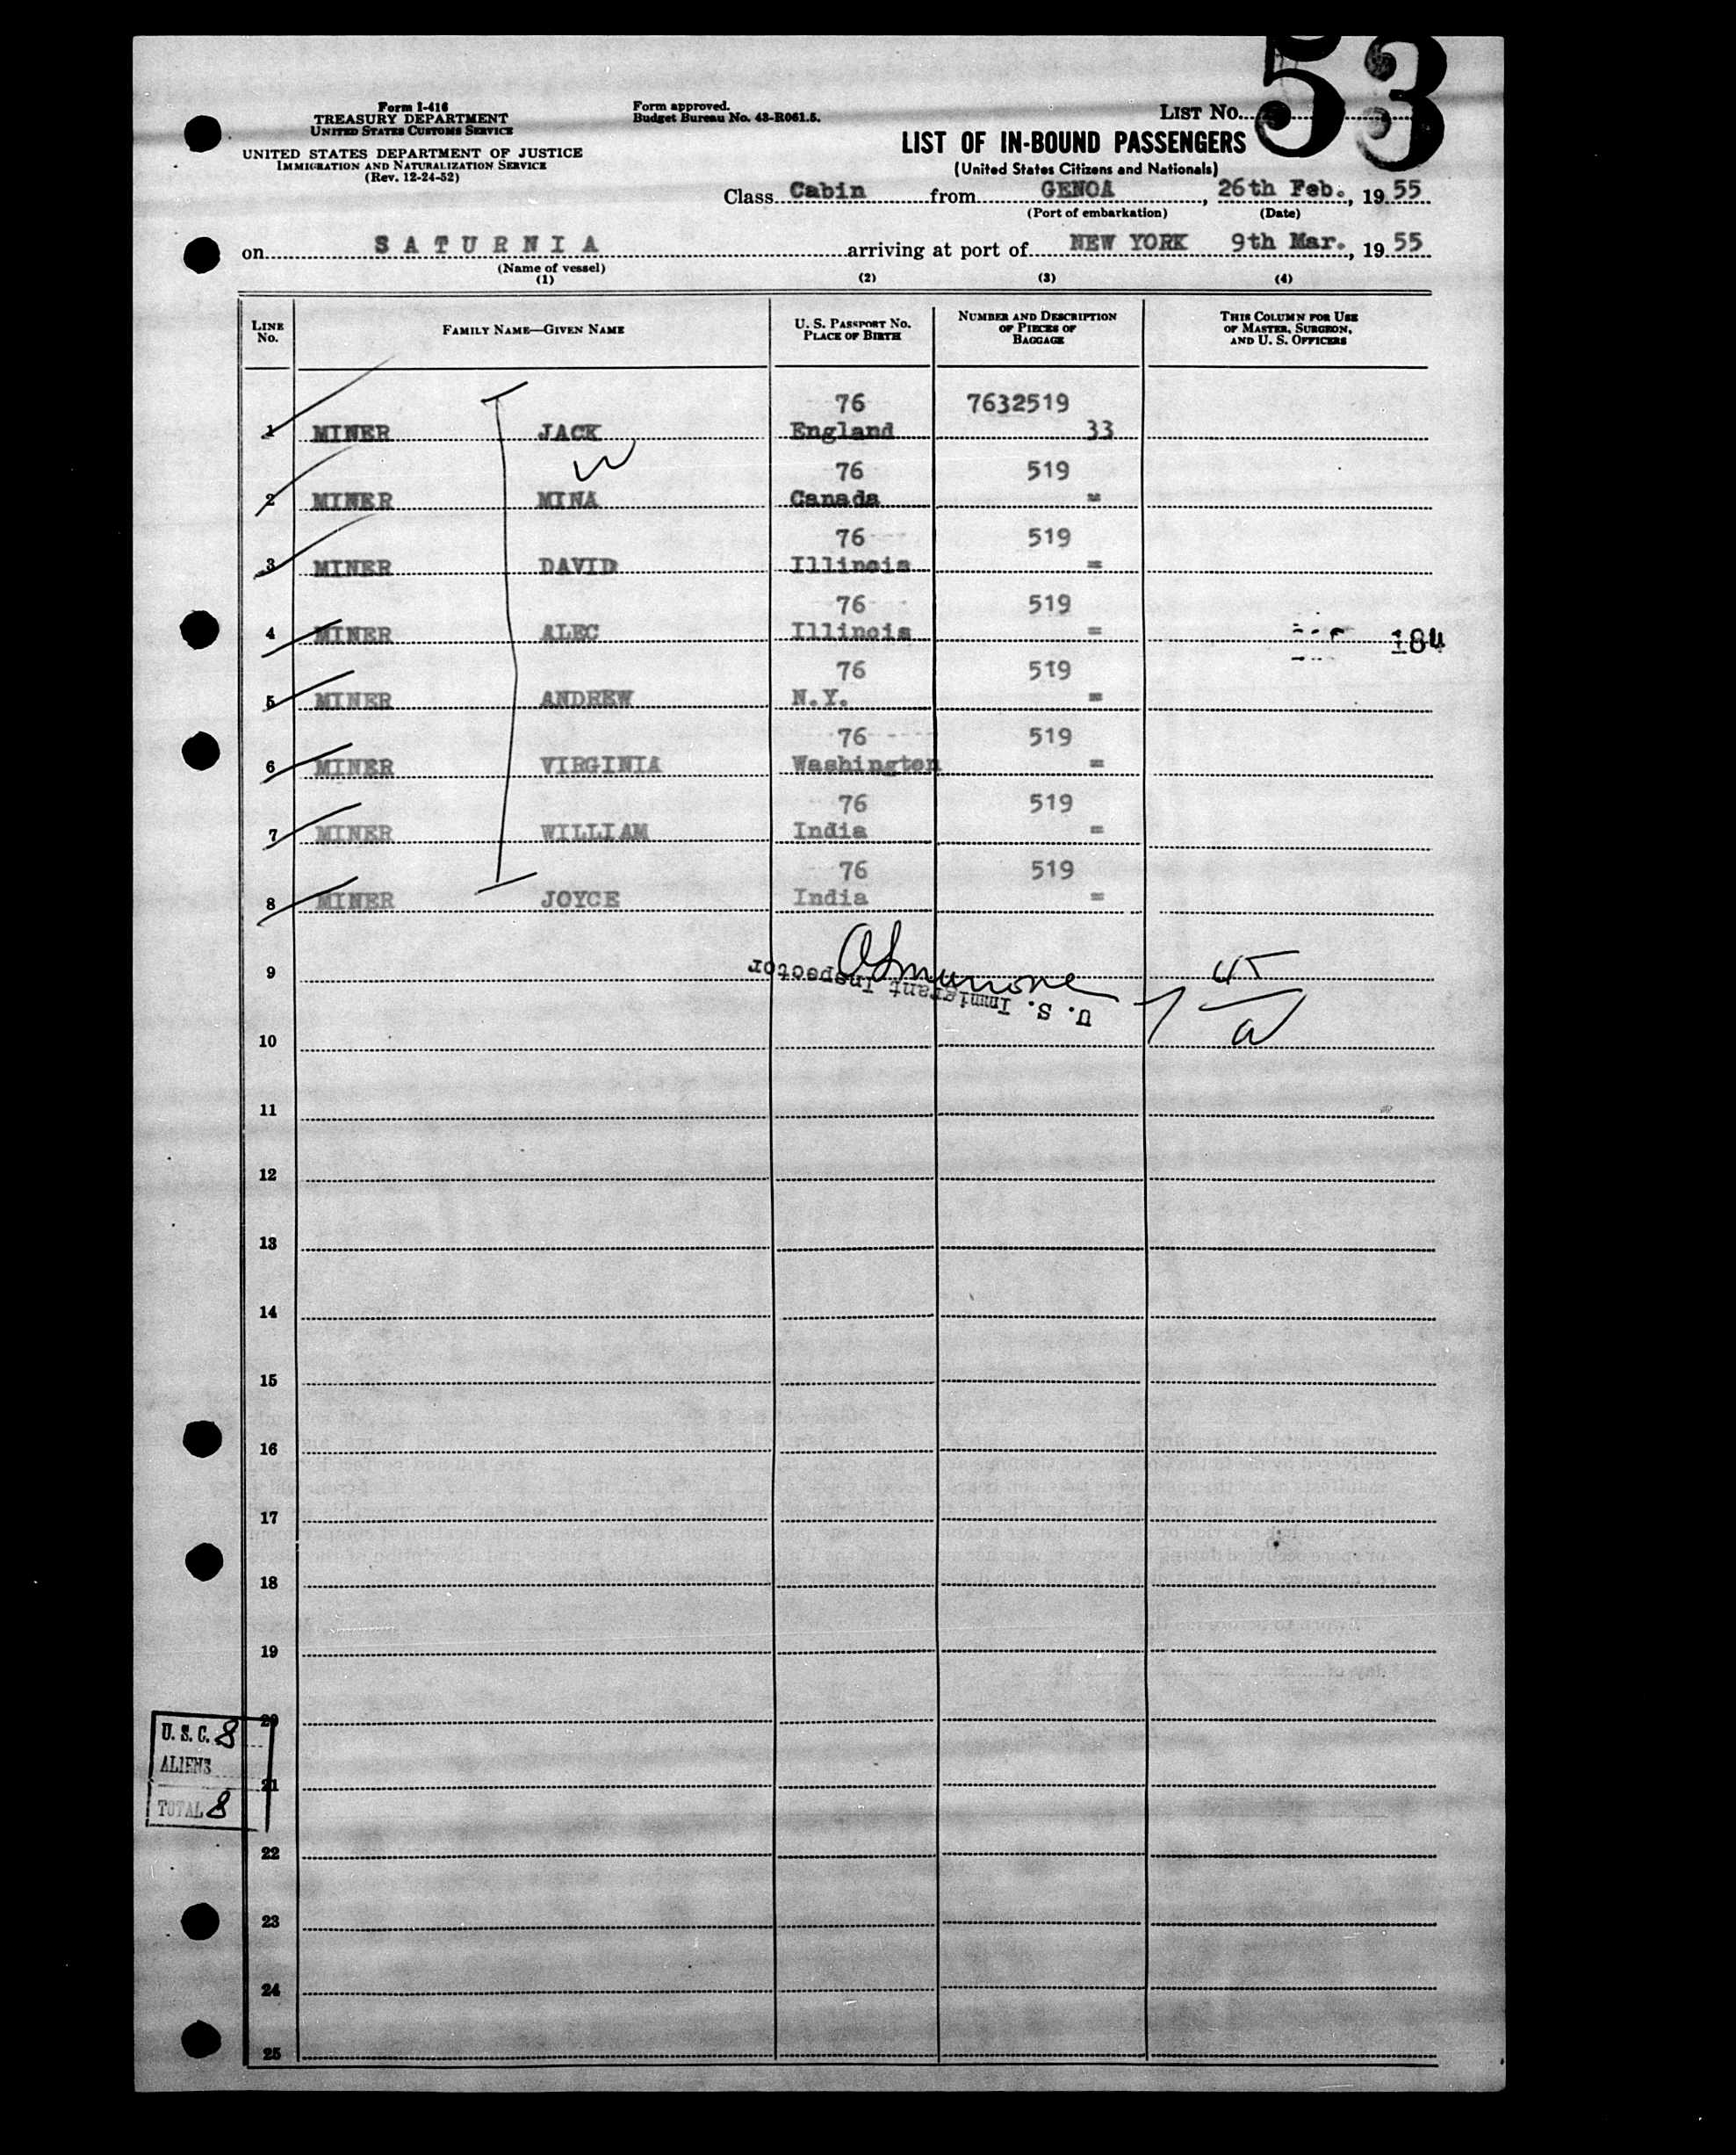 53
Form I-416
TREASURY DEPARTMENT
UNITED STATES CUSTOMS SERVICE
UNITED STATES DEPARTMENT OF JUSTICE
IMMIGRATION AND NATURALIZATION SERVICE
(Rev. 12-24-52)
Form approved.
Budget Bureau No. 43-R061.5.
LIST No.
LIST OF IN-BOUND PASSENGERS
(United States Citizens and Nationals)
Class Cabin from GENOA, 26th Feb., 1955
(Port of embarkation) (Date)
on SATURNIA arriving at port of NEW YORK 9th Mar., 1955
(Name of vessel)
(1) (2) (3) (4)
LINE No. FAMILY NAME—GIVEN NAME U. S. PASSPORT No. PLACE OF BIRTH NUMBER AND DESCRIPTION OF PIECES OF BAGGAGE THIS COLUMN FOR USE OF MASTER, SURGEON, AND U. S. OFFICERS
76 7632519
1 MINER JACK England 33
76 519
2 MINER MINA Canada "
76 519
3 MINER DAVID Illinois =
76 519
4 MINER ALEC Illinois = 184
76 519
5 MINER ANDREW N.Y. =
76 519
6 MINER VIRGINIA Washington =
76 519
7 MINER WILLIAM India =
76 519
8 MINER JOYCE India =
9
U. S. Immigrant Inspector
10
11
12
13
14
15
16
17
18
19
20
U. S. C. 8
ALIENS
21
TOTAL 8
22
23
24
25